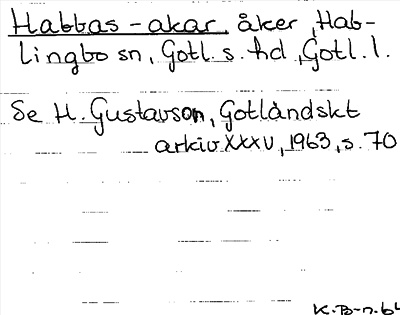 Habbas-akar, åker, Hab-
lingbo sn, Gotl. s. hd, Gotl. l.
Se H. Gustavson, Gotländskt
arkiv XXXV, 1963, s. 70
K. B-n. 64